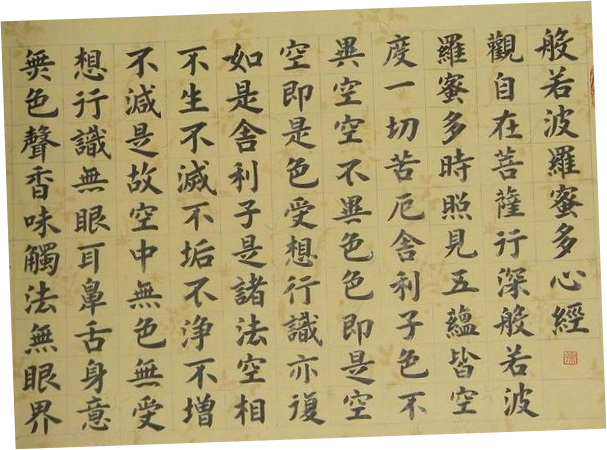 般若波羅蜜多心經
觀自在菩薩行深般若波
羅蜜多時照見五蘊皆空
度一切苦厄舍利子色不
異空空不異色色即是空
空即是色受想行識亦復
如是舍利子是諸法空相
不生不滅不垢不淨不增
不減是故空中無色無受
想行識無眼耳鼻舌身意
無色聲香味觸法無眼界